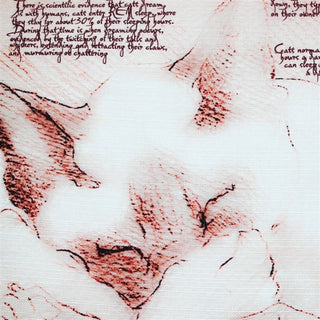 There is scientific evidence that cats dream.
As with humans, cats enter REM sleep, where
they stay for about 30% of their sleeping hours.
During that time is when dreaming occurs,
evidenced by the twitching of their tails and
whiskers, extending and retracting their claws,
and murmuring or chattering
they typ
on their owner
Cats norma
hours a da
can sleep